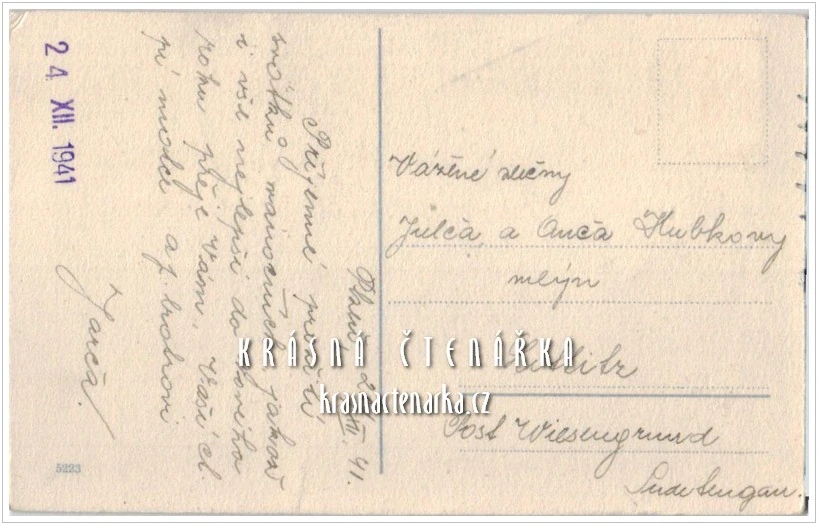 24. XII. 1941
Plzeň, XII. 41.
Příjemné prožití
svátků vánočních jakož
i vše nejlepší do Nového
roku přeje Vám, Vaší ct.
Jarča.
5223
Vážené slečny
Julča a Anča Hubkovy
mlýn
Post Wiesengrund
Sudetengau.
KRÁSNÁ ČTENÁŘKA
krasnactenarka.cz